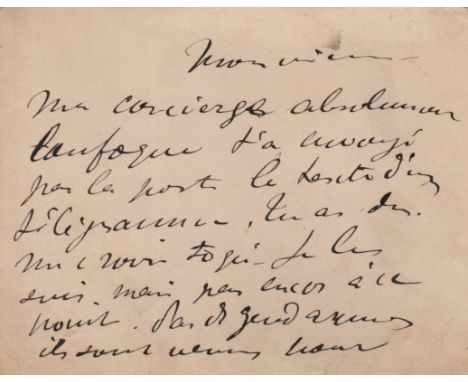 Mon vieux
Ma concierge absolument
loufoque t'a envoyé
par la poste le texte d'un
télégramme. Tu as du
me croire toqué. Je le
suis, mais pas encor à ce
point. Pas de gendarmes
ils sont venus pour